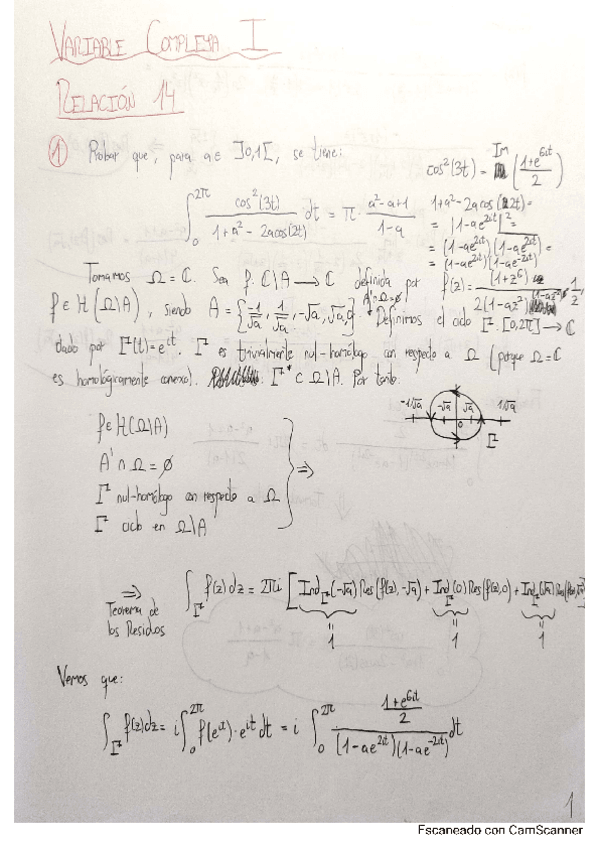 VARIABLE COMPLEJA I
RELACIÓN 14
① Probar que, para a ∈ ]0,1[, se tiene:
∫₀^{2π} cos²(3t) / (1+a²-2acos(2t)) dt = π · (a²-a+1)/(1-a)
cos²(3t) = ((1+e^{6it})/2)
1+a²-2acos(2t) =
= |1-ae^{2it}|² =
= (1-ae^{2it})(\overline{1-ae^{2it}}) =
= (1-ae^{2it})(1-ae^{-2it})
Tomamos Ω = ℂ. Sea f: ℂ\A → ℂ definida por f(z) = (1+z⁶) / 2(1-az²)
f ∈ H(Ω\A), siendo A = {-1/√a, 1/√a, -√a, √a, 0} A'∩Ω=∅ Definimos el ciclo Γ: [0,2π] → ℂ
dado por Γ(t) = e^{it}. Γ es trivialmente nul-homólogo con respecto a Ω (porque Ω = ℂ
es homológicamente conexo). Γ* ⊂ Ω\A. Por tanto:
-1/√a -√a 0 √a 1/√a
Γ
f ∈ H(Ω\A)
A' ∩ Ω = ∅
Γ nul-homólogo con respecto a Ω
Γ ciclo en Ω\A
⇒
⇒ Teorema de los Residuos ∫_Γ f(z)dz = 2πi [Ind_Γ(-√a) Res(f(z), -√a) + Ind_Γ(0) Res(f(z), 0) + Ind_Γ(√a) Res(f(z), √a)
1 1 1
Vemos que:
∫_Γ f(z)dz = i ∫₀^{2π} f(e^{it}) · e^{it} dt = i ∫₀^{2π} ((1+e^{6it})/2) / ((1-ae^{2it})(1-ae^{-2it})) dt
1
Escaneado con CamScanner